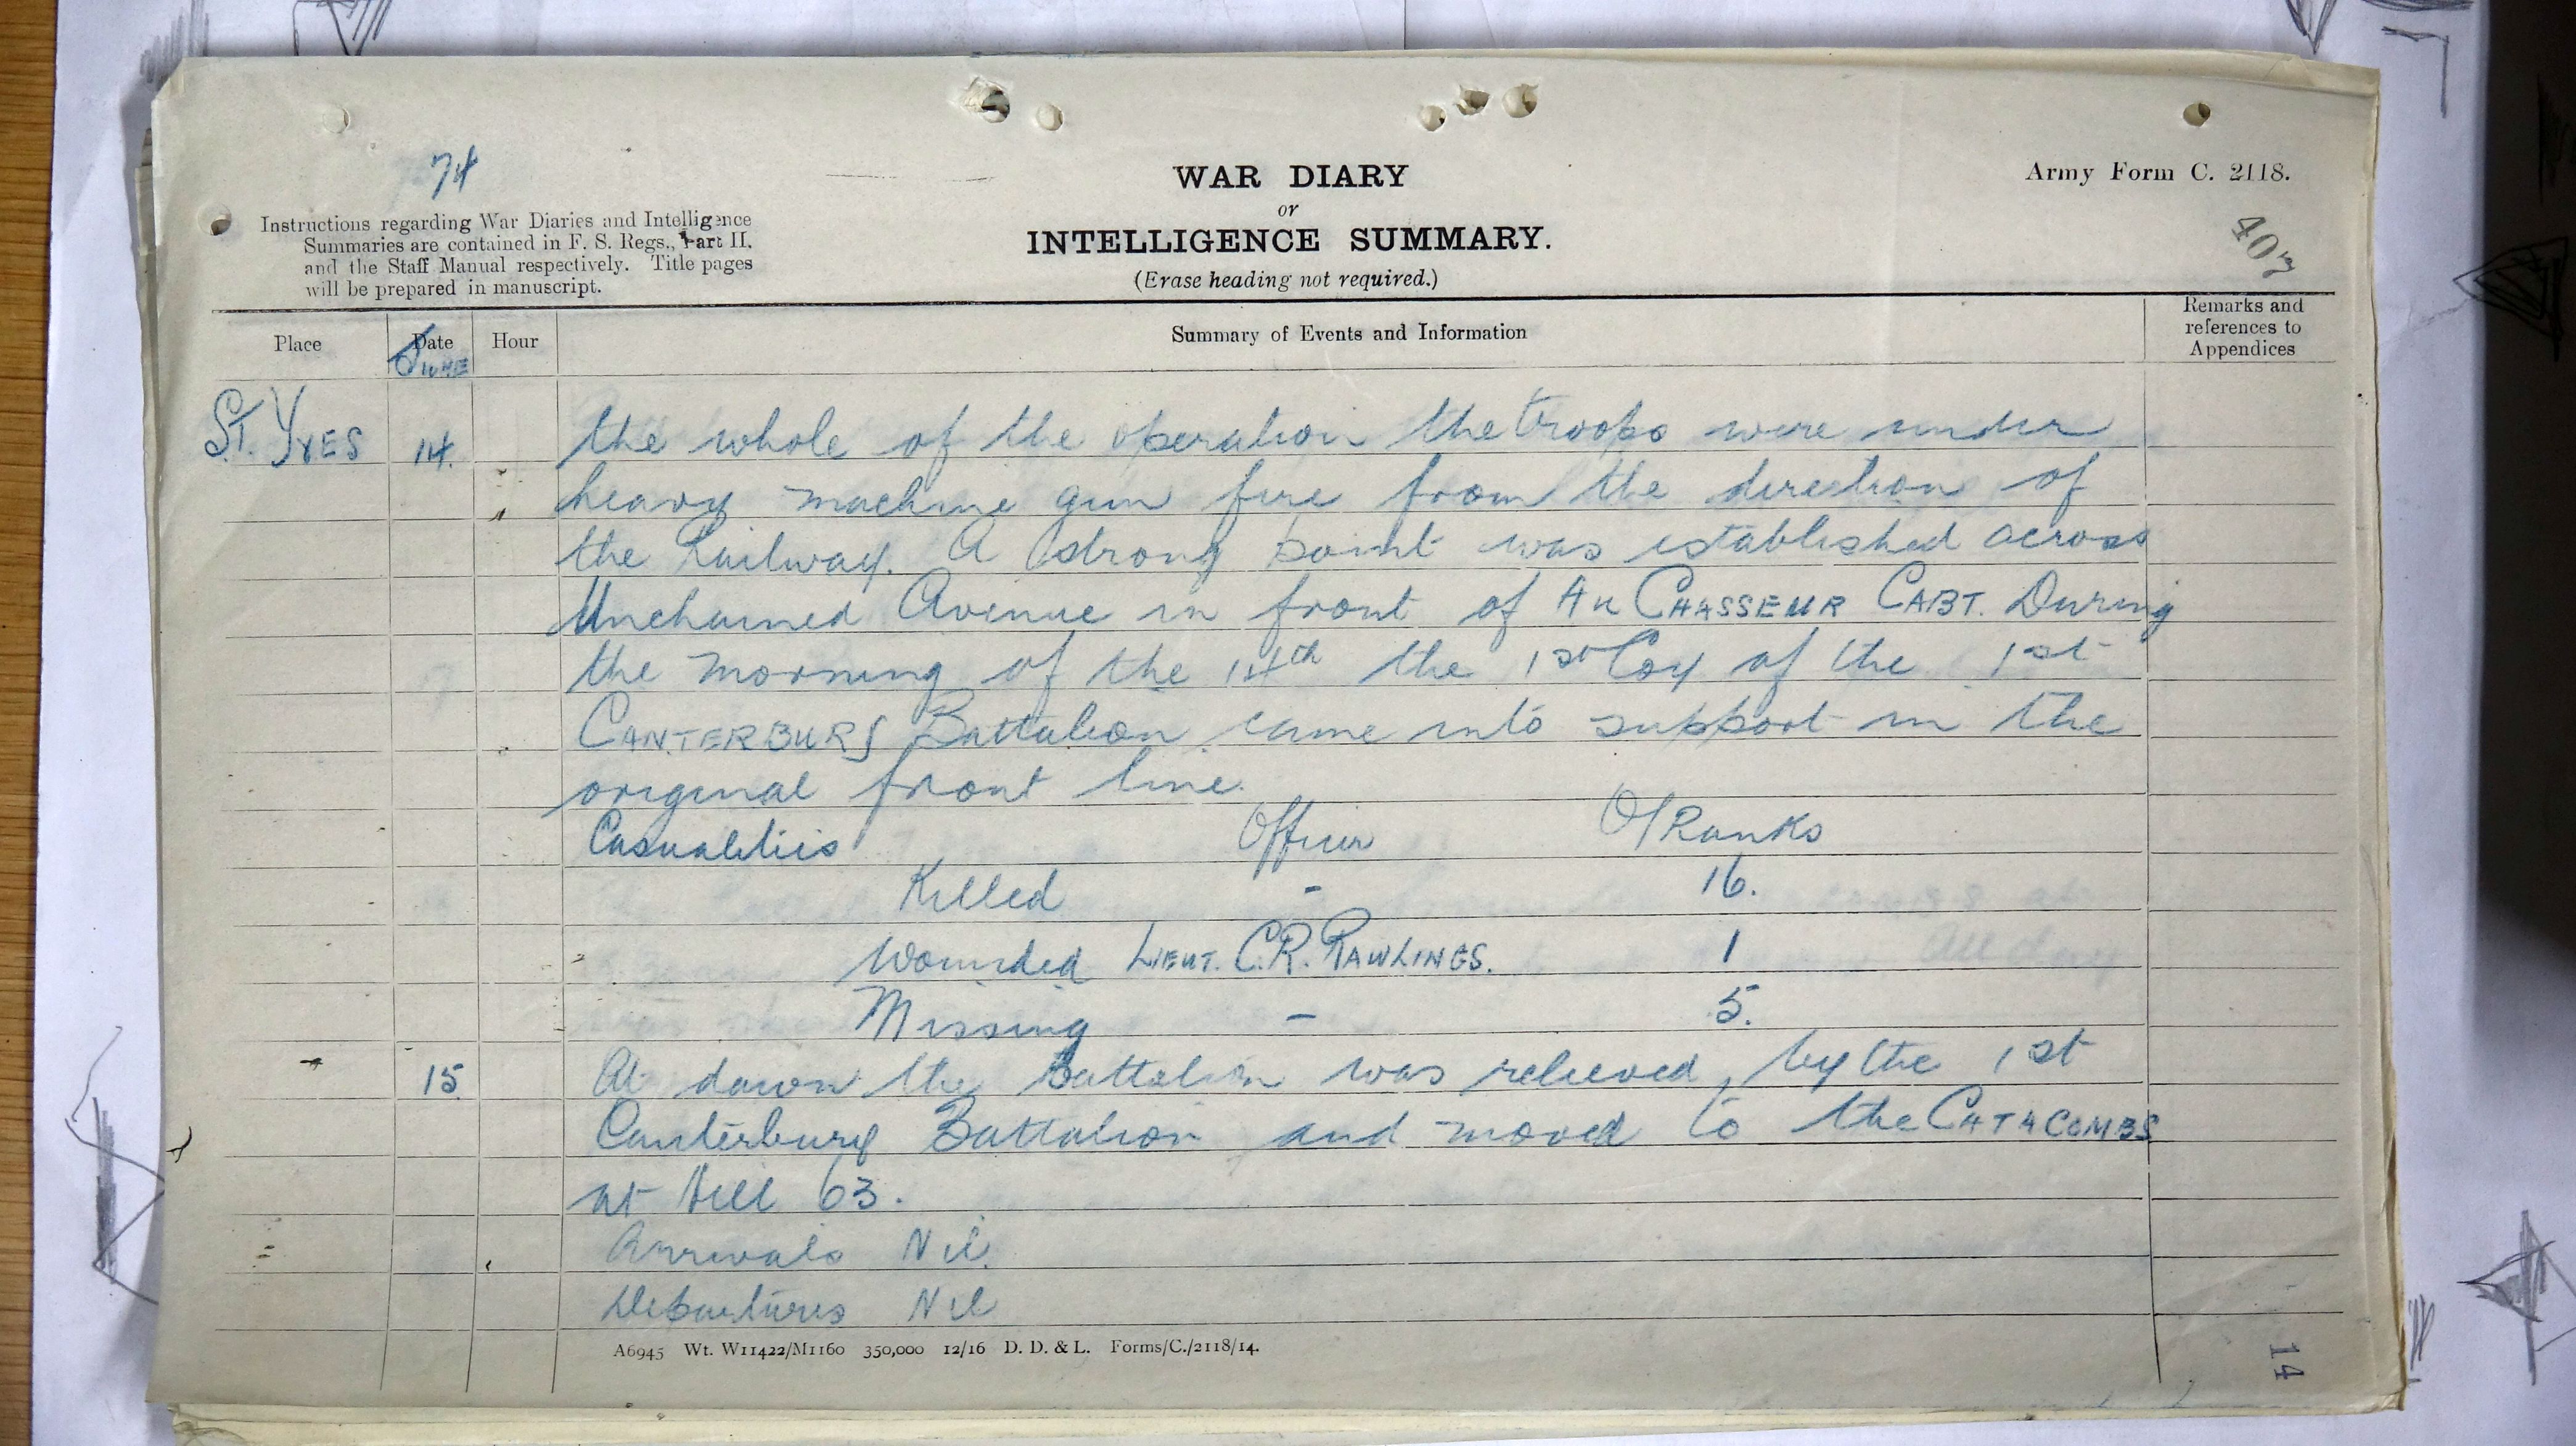 74
WAR DIARY
or
INTELLIGENCE SUMMARY.
(Erase heading not required.)
Army Form C. 2118.
407
Instructions regarding War Diaries and Intelligence
Summaries are contained in F. S. Regs., Part II.
and the Staff Manual respectively. Title pages
will be prepared in manuscript.
Place Date Hour Summary of Events and Information Remarks and references to Appendices
June
St. Yves 14. the whole of the operation the troops were under
heavy machine gun fire from the direction of
the Railway. A strong point was established across
Unchained Avenue in front of Au CHASSEUR CABT. During
the morning of the 14th the 1st Coy of the 1st
CANTERBURY Battalion came into support in the
original front line.
Casualities Officer O/Ranks
Killed - 16.
Wounded LIEUT. C.R. RAWLINGS. 1
Missing - 5.
15 At dawn the Battalion was relieved by the 1st
Canterbury Battalion and moved to the CATACOMBS
at Hill 63.
Arrivals Nil.
Departures Nil
A6945 Wt. W11422/M1160 350,000 12/16 D. D. & L. Forms/C./2118/14.
14